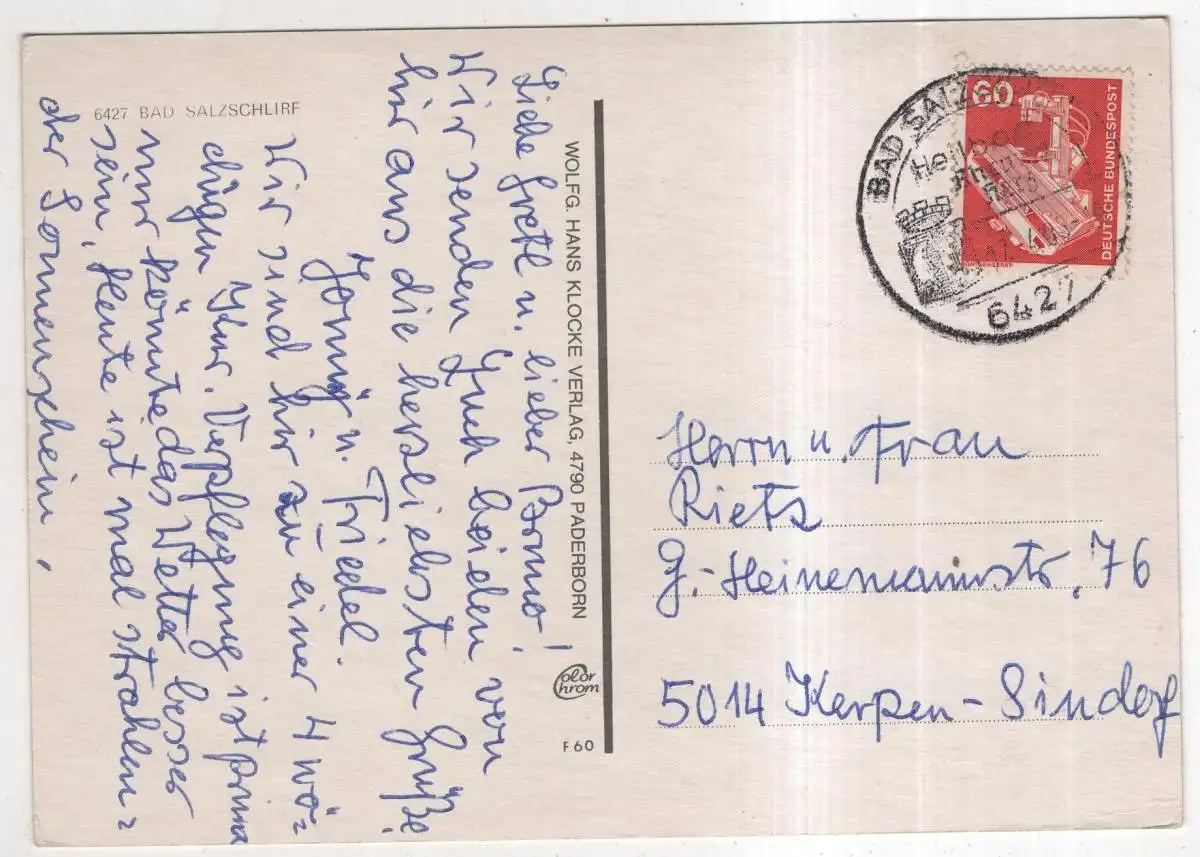 6427 BAD SALZSCHLIRF
Liebe Gretl u. lieber Bruno!
Wir senden Euch beiden von
hir aus die herslichsten Grüße
Jonny u. Friedel.
Wir sind hir zu einer 4 wö=
chigen Kur. Verpflegung ist prima
nur könnte das Wetter besser
sein, Heute ist mal strahlen=
der Sonnenschein,
WOLFG. HANS KLOCKE VERLAG, 4790 PADERBORN
Color Chrom
F60
60
DEUTSCHE BUNDESPOST
BAD SALZ
6427
Herrn u. Frau
Rietz
G.-Heinemannstr. 76
5014 Kerpen-Sindorf